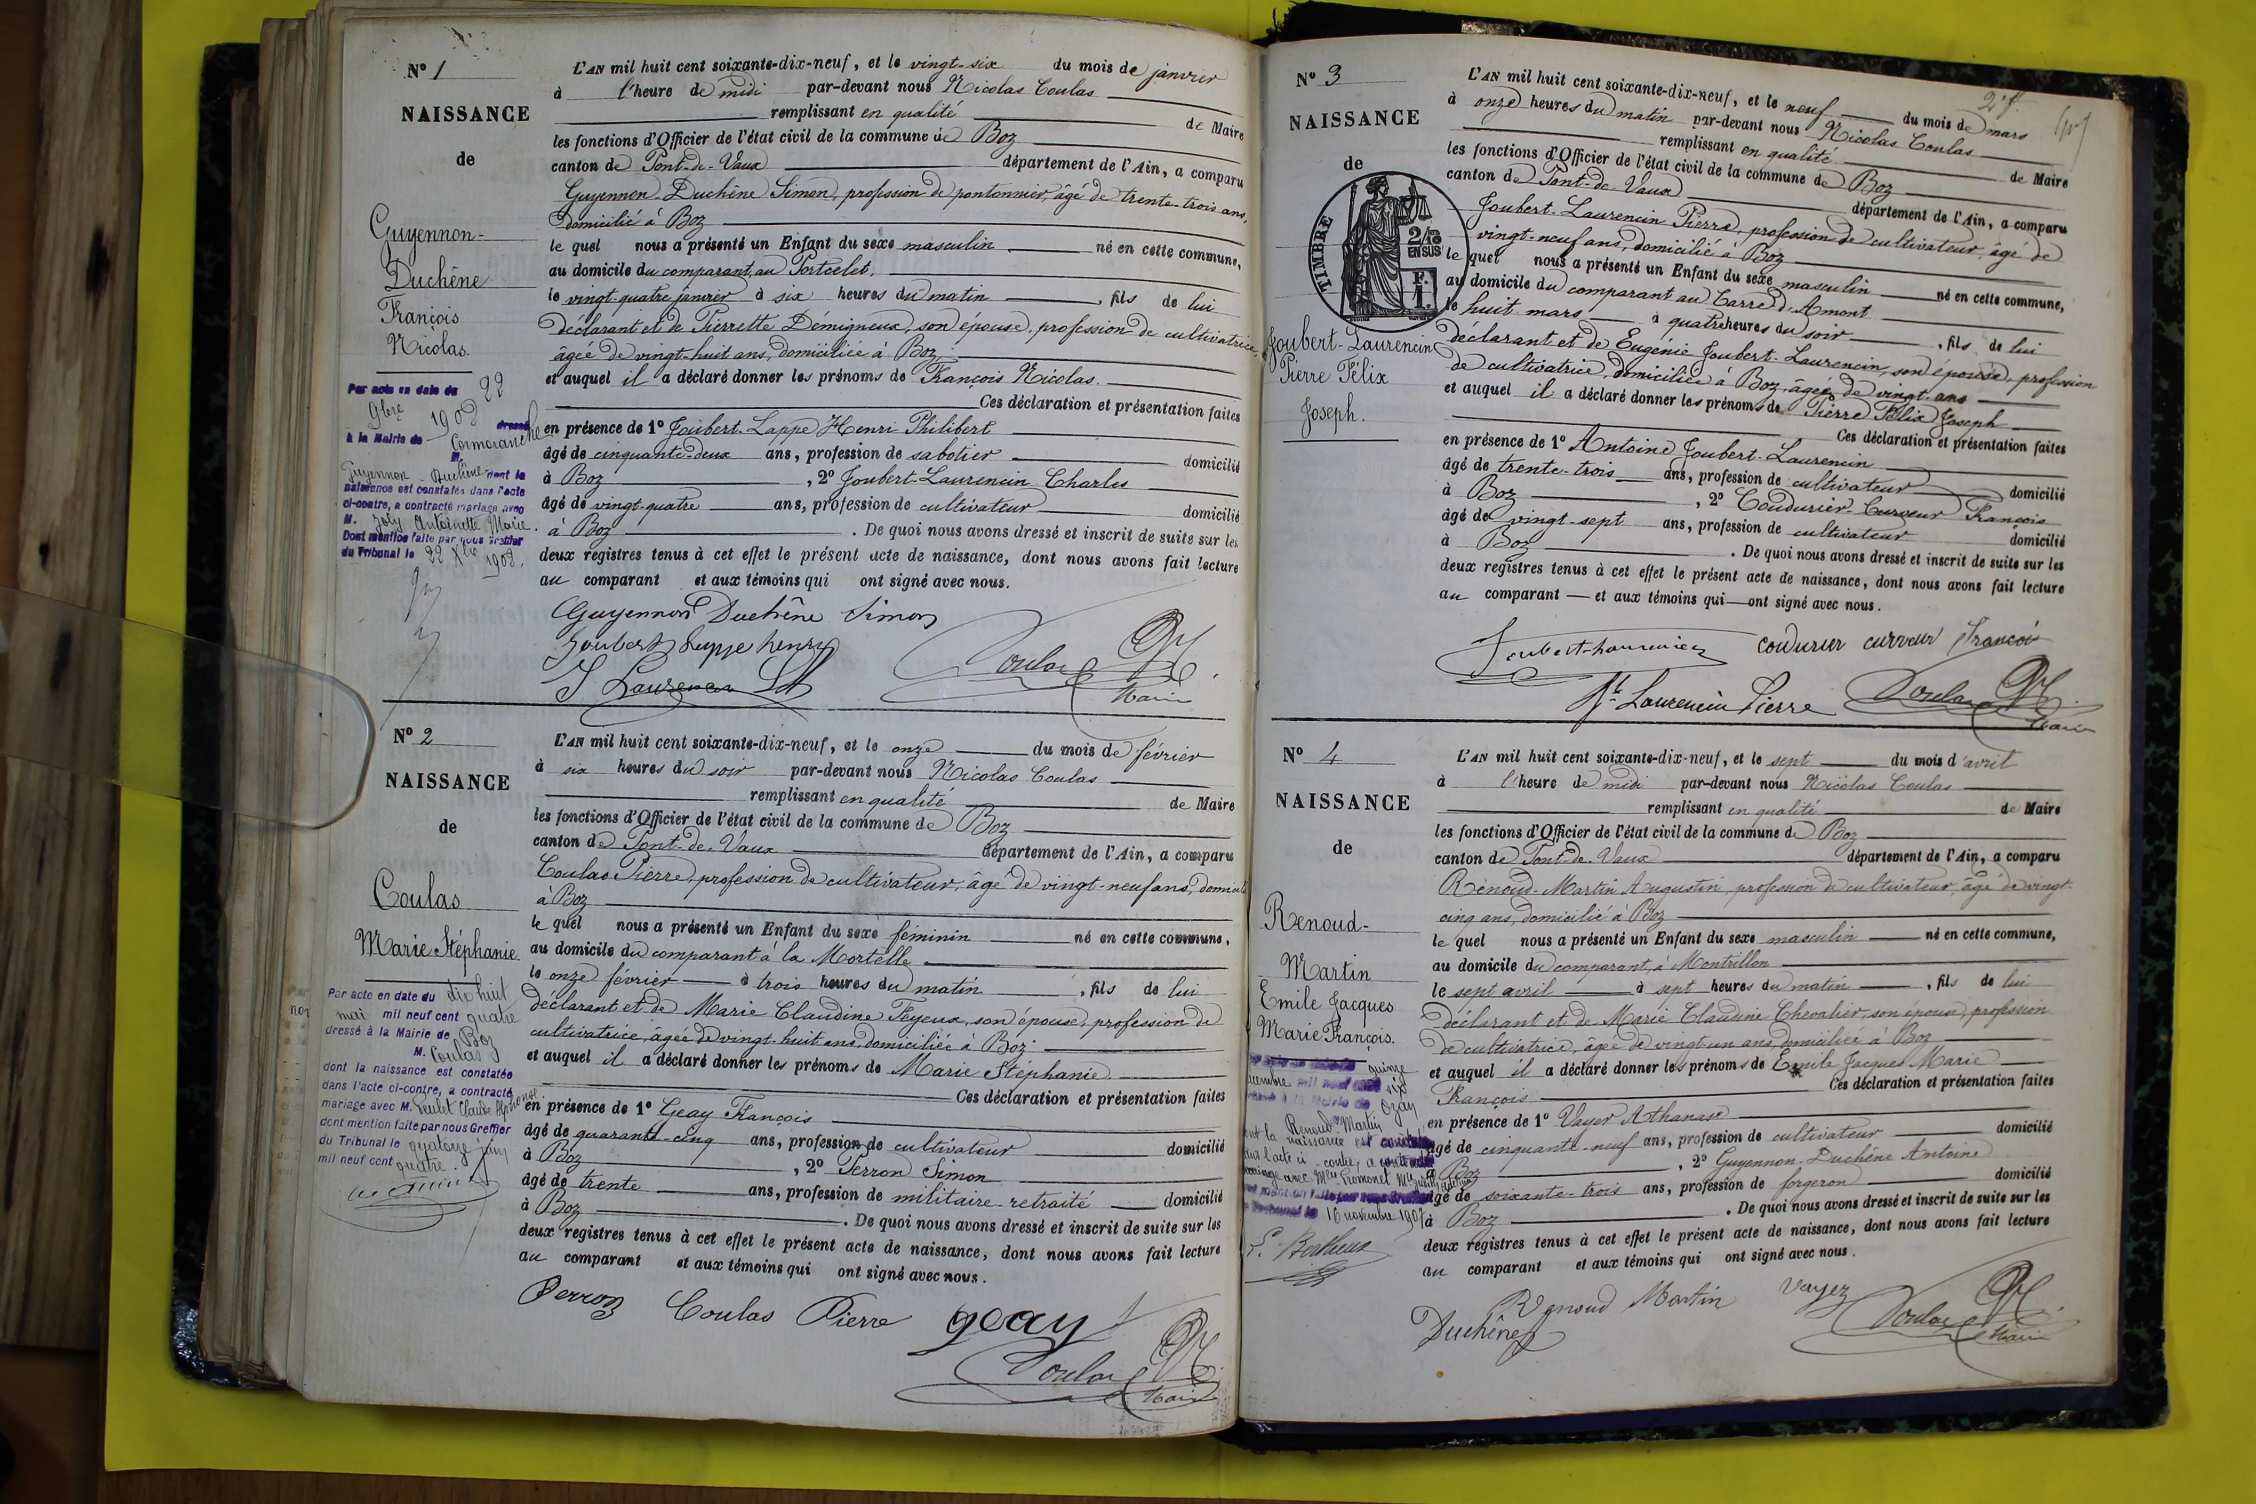 N° 1
NAISSANCE
de
Guyennon-
Duchêne
François
Nicolas.
Par acte en date du 22
9bre 1908 dressé
à la Mairie de Cormoranche
M.
Guyennon-Duchêne dont la
naissance est constatée dans l'acte
ci-contre, a contracté mariage avec
M. Joly Antoinette Marie.
Dont mention faite par nous Greffier
du Tribunal le 22 Xbre 1908.
L'AN mil huit cent soixante-dix-neuf, et le vingt-six du mois de janvier
à l'heure de midi par-devant nous Nicolas Coulas
remplissant en qualité de Maire
les fonctions d'Officier de l'état civil de la commune de Boz
canton de Pont-de-Vaux département de l'Ain, a comparu
Guyennon-Duchêne Simon, profession de pontonnier, âgé de trente-trois ans,
domicilié à Boz
le quel nous a présenté un Enfant du sexe masculin né en cette commune,
au domicile du comparant, au Portcelet,
le vingt-quatre janvier à six heures du matin, fils de lui
déclarant et de Pierrette Démigneux, son épouse, profession de cultivatrice,
âgée de vingt-huit ans, domiciliée à Boz,
et auquel il a déclaré donner les prénoms de François Nicolas.
Ces déclaration et présentation faites
en présence de 1° Joubert-Lappe Henri Philibert
âgé de cinquante-deux ans, profession de sabotier domicilié
à Boz, 2° Joubert-Laurencin Charles
âgé de vingt-quatre ans, profession de cultivateur domicilié
à Boz. De quoi nous avons dressé et inscrit de suite sur les
deux registres tenus à cet effet le présent acte de naissance, dont nous avons fait lecture
au comparant et aux témoins qui ont signé avec nous.
Guyennon Duchêne Simon
Joubert Lappe henry
J Laurencin
Coulas
Maire
N° 2
NAISSANCE
de
Coulas
Marie Stéphanie
Par acte en date du dix huit
mai mil neuf cent quatre
dressé à la Mairie de Boz
M. Coulas
dont la naissance est constatée
dans l'acte ci-contre, a contracté
mariage avec M. Claude Alphonse
dont mention faite par nous Greffier
du Tribunal le quatorze juin
mil neuf cent quatre.
L'AN mil huit cent soixante-dix-neuf, et le onze du mois de février
à six heures du soir par-devant nous Nicolas Coulas
remplissant en qualité de Maire
les fonctions d'Officier de l'état civil de la commune de Boz
canton de Pont-de-Vaux département de l'Ain, a comparu
Coulas Pierre, profession de cultivateur, âgé de vingt-neuf ans, domicilié
à Boz
le quel nous a présenté un Enfant du sexe féminin né en cette commune,
au domicile du comparant à la Mortelle
le onze février à trois heures du matin, fils de lui
déclarant et de Marie Claudine Feyeux, son épouse, profession de
cultivatrice, âgée de vingt-huit ans, domiciliée à Boz
et auquel il a déclaré donner les prénoms de Marie Stéphanie.
Ces déclaration et présentation faites
en présence de 1° Geay François
âgé de quarante-cinq ans, profession de cultivateur domicilié
à Boz, 2° Perron Simon
âgé de trente ans, profession de militaire-retraité domicilié
à Boz. De quoi nous avons dressé et inscrit de suite sur les
deux registres tenus à cet effet le présent acte de naissance, dont nous avons fait lecture
au comparant et aux témoins qui ont signé avec nous.
Perron Coulas Pierre geay
Coulas
Maire
N° 3
NAISSANCE
de
TIMBRE
2/10
EN SUS
F.
1.
Joubert-Laurencin
Pierre Félix
Joseph.
L'AN mil huit cent soixante-dix-neuf, et le neuf du mois de mars
à onze heures du matin par-devant nous Nicolas Coulas
remplissant en qualité de Maire
les fonctions d'Officier de l'état civil de la commune de Boz
canton de Pont-de-Vaux département de l'Ain, a comparu
Joubert-Laurencin Pierre, profession de cultivateur, âgé de
vingt-neuf ans, domicilié à Boz
le quel nous a présenté un Enfant du sexe masculin né en cette commune,
au domicile du comparant au Carre d'Amont
le huit mars à quatre heures du soir, fils de lui
déclarant et de Eugénie Joubert-Laurencin, son épouse, profession
de cultivatrice, domiciliée à Boz, âgée de vingt ans
et auquel il a déclaré donner les prénoms de Pierre Félix Joseph
Ces déclaration et présentation faites
en présence de 1° Antoine Joubert-Laurencin
âgé de trente-trois ans, profession de cultivateur domicilié
à Boz, 2° Coudurier-Curveur François
âgé de vingt-sept ans, profession de cultivateur domicilié
à Boz. De quoi nous avons dressé et inscrit de suite sur les
deux registres tenus à cet effet le présent acte de naissance, dont nous avons fait lecture
au comparant et aux témoins qui ont signé avec nous.
Joubert-Laurencin coudurier curveur françois
Jt Laurencin Pierre Coulas
Maire
N° 4
NAISSANCE
de
Renoud-
Martin
Emile Jacques
Marie François.
quinze
décembre mil neuf cent six
Ozan
Renoud-Martin
dont la naissance est constatée
dans l'acte ci-contre, a contracté
mariage avec Mlle
16 novembre 1907
Berthoux
L'AN mil huit cent soixante-dix-neuf, et le sept du mois d'avril
à l'heure de midi par-devant nous Nicolas Coulas
remplissant en qualité de Maire
les fonctions d'Officier de l'état civil de la commune de Boz
canton de Pont-de-Vaux département de l'Ain, a comparu
Renoud-Martin Augustin, profession de cultivateur, âgé de vingt-
cinq ans, domicilié à Boz
le quel nous a présenté un Enfant du sexe masculin né en cette commune,
au domicile du comparant, à Montrillon
le sept avril à sept heures du matin, fils de lui
déclarant et de Marie Claudine Chevalier, son épouse, profession
de cultivatrice, âgée de vingt-un ans, domiciliée à Boz
et auquel il a déclaré donner les prénoms de Emile Jacques Marie
François Ces déclaration et présentation faites
en présence de 1° Vayer Athanase
âgé de cinquante-neuf ans, profession de cultivateur domicilié
à Boz, 2° Guyennon-Duchêne Antoine
âgé de soixante-trois ans, profession de forgeron domicilié
à Boz. De quoi nous avons dressé et inscrit de suite sur les
deux registres tenus à cet effet le présent acte de naissance, dont nous avons fait lecture
au comparant et aux témoins qui ont signé avec nous.
Renoud Martin Vayer
Duchêne Coulas
Maire